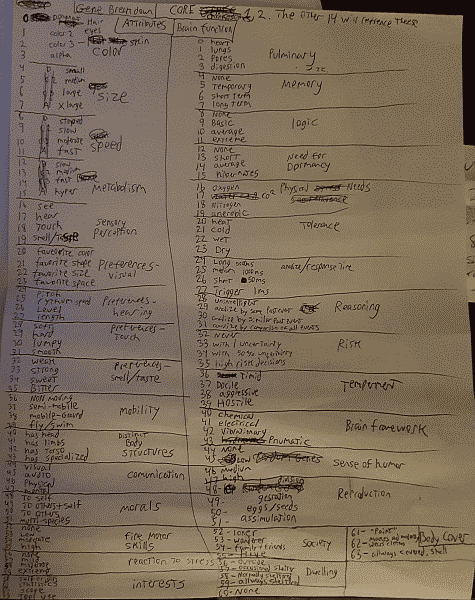 Gene Breakdown
CORE
1, 2. The other 14 will reference these
Attributes
Brain function
Hair
eyes
skin
1 color 2
2 color 3
3 alpha
color
4 small
5 medium
6 large
7 x large
size
8 stopped
9 slow
10 moderate
11 fast
speed
12 slow
13 medium
14 fast
15 hyper
metabolism
16 see
17 hear
18 touch
19 smell/taste
sensory perception
20 favorite color
21 favorite shape
22 favorite size
23 favorite space
Preferences - visual
24 Pitch
25 Rythm speed
26 Level
27 length
Preferences - hearing
28 soft
29 hard
30 lumpy
31 smooth
preferences - Touch
32 weak
33 strong
34 sweet
35 Bitter
preferences - smell/taste
36 Non moving
37 semi-mobile
38 mobile-Ground
39 fly/swim
mobility
40 has head
41 has limbs
42 has torso
43 has specialized
Distinct Body structures
44 visual
45 audio
46 Physical
47 mental
comunication
48 To self
49 To others
50 To others
51 multi species
morals
none
low
moderate
high
fine motor skills
none
moderate
extreme
reaction to stress
statistics
scope
tool use
interests
0 heart
1 lungs
2 Pores
3 digestion
Pulminary
4 None
5 Temporary
6 short term
7 long term
Memory
8 None
9 Basic
10 average
11 extreme
logic
12 None
13 short
14 average
15 hibernates
Need for Dormancy
16 Oxygen
17 CO²
18 Nitrogen
19 aneropic
Physical Needs
20 heat
21 cold
22 wet
23 Dry
Tolerance
24 Long
25 median
26 short 50ms
27 Trigger 1ms
analize/response time
28 unintelligent
29 analize by some past event
30 analize by similar past event
31 analize by comparison to all events
Reasoning
32 never
33 with 1 uncertainty
34 with 50% uncertainty
35 high risk decisions
Risk
36 Timid
37 Docile
38 aggressive
39 Hostile
Temperment
40 chemical
41 electrical
42
43 Pnumatic
Brain framework
44 None
45 Low
46 medium
47 high
sense of humor
48
49 gestation
50 - eggs/seeds
51 - assimilation
Reproduction
52 - loner
53 - wanderer
54 - family + friends
55
Society
56 - outside
57 - occasional shelter
58 - Normally shelter
59 - allways sheltered
60 - None
Dwelling
61 - "Point"
62
63 - allways covered, shell
Body cover